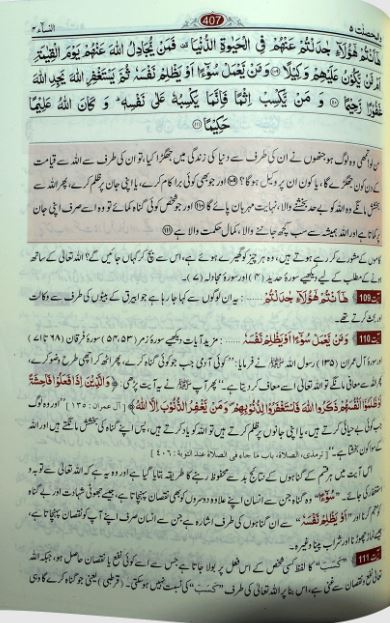 والمحصنت ٥ 407 النسآء ٤
هٰٓاَنْتُمْ هٰٓؤُلَآءِ جٰدَلْتُمْ عَنْهُمْ فِي الْحَيٰوةِ الدُّنْيَا فَمَنْ يُّجَادِلُ اللّٰهَ عَنْهُمْ يَوْمَ الْقِيٰمَةِ
اَمْ مَّنْ يَّكُوْنُ عَلَيْهِمْ وَكِيْلًا ﴿١٠٩﴾ وَمَنْ يَّعْمَلْ سُوْٓءًا اَوْ يَظْلِمْ نَفْسَهٗ ثُمَّ يَسْتَغْفِرِ اللّٰهَ يَجِدِ اللّٰهَ
غَفُوْرًا رَّحِيْمًا ﴿١١٠﴾ وَ مَنْ يَّكْسِبْ اِثْمًا فَاِنَّمَا يَكْسِبُهٗ عَلٰى نَفْسِهٖ وَ كَانَ اللّٰهُ عَلِيْمًا
حَكِيْمًا ﴿١١١﴾
سن لو! تمھی وہ لوگ ہو جنھوں نے ان کی طرف سے دنیا کی زندگی میں جھگڑا کیا، تو ان کی طرف سے اللہ سے قیامت
کے دن کون جھگڑے گا، یا کون ان پر وکیل ہوگا؟ ﴿١٠٩﴾ اور جو بھی کوئی برا کام کرے، یا اپنی جان پر ظلم کرے، پھر اللہ سے
بخشش مانگے وہ اللہ کو بے حد بخشنے والا، نہایت مہربان پائے گا ﴿١١٠﴾ اور جو شخص کوئی گناہ کمائے تو وہ اسے صرف اپنی جان
پر کماتا ہے اور اللہ ہمیشہ سے سب کچھ جاننے والا، کمال حکمت والا ہے ﴿١١١﴾
کاموں کے مشورے کر رہے ہوتے ہیں، وہ ہر چیز کو گھیرے ہوئے ہے، اس سے بچ کر کہاں جائیں گے؟ اللہ تعالیٰ کے ساتھ
ہونے کے مطلب کے لیے دیکھیے سورۂ حدید (۴) اور سورۂ مجادلہ (۷)۔
آیت 109 هٰٓاَنْتُمْ هٰٓؤُلَآءِ جٰدَلْتُمْ ...... : یہ ان لوگوں سے کہا جا رہا ہے جو ابیرق کے بیٹوں کی طرف سے وکالت
اور بحث کرتے تھے۔
آیت 110 وَمَنْ يَّعْمَلْ سُوْٓءًا اَوْ يَظْلِمْ نَفْسَهٗ ...... : مزید آیات دیکھیے سورۂ زمر (۵۳، ۵۴) سورۂ فرقان (۶۸ تا ۷۱)
اور سورۂ آل عمران (۱۳۵) رسول اللہ ﷺ نے فرمایا: ”کوئی آدمی جب جو کوئی گناہ کرے، پھر اٹھ کر اچھی طرح وضو کرے،
پھر اللہ سے معافی مانگے تو اللہ تعالیٰ اسے معاف کر دیتا ہے۔“ پھر آپ ﷺ نے یہ آیت پڑھی: ﴿وَالَّذِيْنَ اِذَا فَعَلُوْا فَاحِشَةً
اَوْ ظَلَمُوْٓا اَنْفُسَهُمْ ذَكَرُوا اللّٰهَ فَاسْتَغْفَرُوْا لِذُنُوْبِهِمْ وَمَنْ يَّغْفِرُ الذُّنُوْبَ اِلَّا اللّٰهُ﴾ [آل عمران : ۱۳۵] ”اور وہ لوگ
جب کوئی بے حیائی کرتے ہیں، یا اپنی جانوں پر ظلم کرتے ہیں، تو اللہ کو یاد کرتے ہیں، پس اپنے گناہ کی بخشش مانگتے ہیں اور اللہ
کے سوا کون بخشتا ہے۔“ [ترمذی، الصلاة، باب ما جاء فی الصلاة عند التوبة : ٤٠٦]
اس آیت میں ہر قسم کے گناہوں کے نتائج بد سے محفوظ رہنے کا طریقہ بتایا گیا ہے اور وہ یہ ہے کہ اللہ تعالیٰ سے توبہ و
استغفار کی جائے۔ ”سُوْٓءًا“ وہ گناہ جن سے انسان اپنے علاوہ دوسروں کو بھی نقصان پہنچاتا ہے، جیسے جھوٹی شہادت اور بے گناہ
”اَوْ يَظْلِمْ نَفْسَهٗ“ سے ان گناہوں کی طرف اشارہ ہے جن سے انسان صرف اپنے آپ کو نقصان پہنچاتا ہے،
جیسے نماز چھوڑنا اور شراب پینا وغیرہ۔
آیت 111 ”كَسْب“ کا لفظ کسی شخص کے اس فعل پر بولا جاتا ہے جس سے اسے کوئی نفع یا نقصان حاصل ہو، جبکہ اللہ
تعالیٰ نفع و نقصان سے غنی ہے، اس بنا پر اللہ تعالیٰ کی طرف ”كَسْب“ کی نسبت نہیں ہو سکتی۔ (قرطبی) یعنی جو گناہ کرے گا وہی